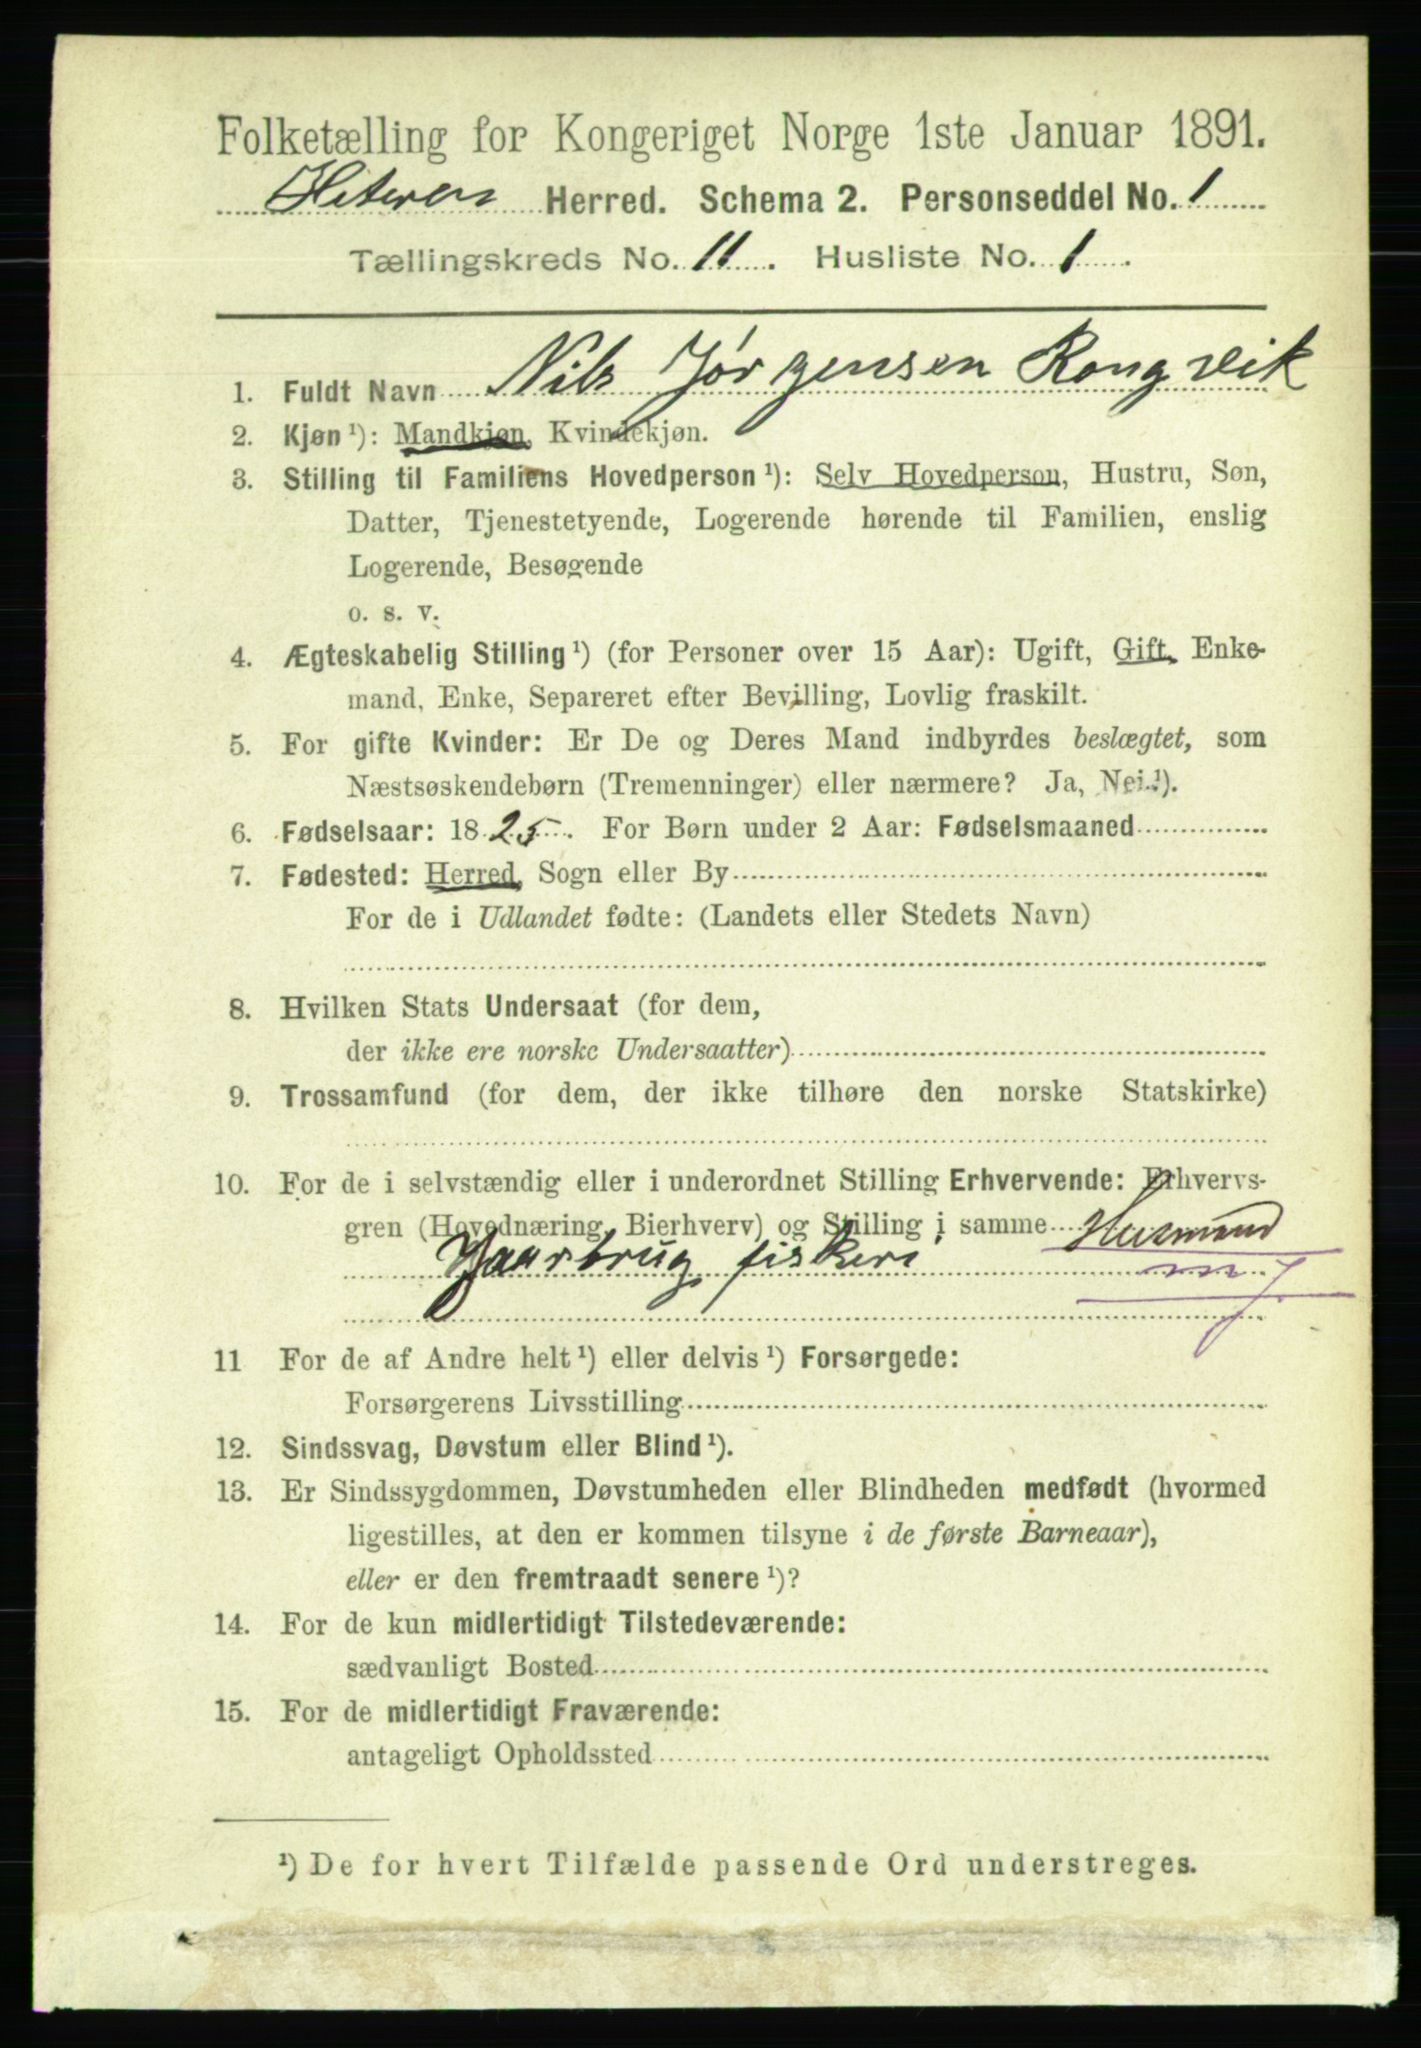 Folketælling for Kongeriget Norge 1ste Januar 1891.
Hiteren Herred. Schema 2. Personseddel No. 1
Tællingskreds No. 11. Husliste No. 1.
1. Fuldt Navn Nils Jørgensen Rongvik
2. Kjøn¹): Mandkjøn, Kvindekjøn.
3. Stilling til Familiens Hovedperson¹): Selv Hovedperson, Hustru, Søn,
Datter, Tjenestetyende, Logerende hørende til Familien, enslig
Logerende, Besøgende
o. s. v.
4. Ægteskabelig Stilling¹) (for Personer over 15 Aar): Ugift, Gift, Enke-
mand, Enke, Separeret efter Bevilling, Lovlig fraskilt.
5. For gifte Kvinder: Er De og Deres Mand indbyrdes beslægtet, som
Næstsøskendebørn (Tremenninger) eller nærmere? Ja, Nei.¹).
6. Fødselsaar: 1825. For Børn under 2 Aar: Fødselsmaaned
7. Fødested: Herred, Sogn eller By
For de i Udlandet fødte: (Landets eller Stedets Navn)
8. Hvilken Stats Undersaat (for dem,
der ikke ere norske Undersaatter)
9. Trossamfund (for dem, der ikke tilhøre den norske Statskirke)
10. For de i selvstændig eller i underordnet Stilling Erhvervende: Erhvervs-
gren (Hovednæring, Bierhverv) og Stilling i samme Husmand
Gaarbrug fiskeri m J
11 For de af Andre helt¹) eller delvis¹) Forsørgede:
Forsørgerens Livsstilling
12. Sindssvag, Døvstum eller Blind¹).
13. Er Sindssygdommen, Døvstumheden eller Blindheden medfødt (hvormed
ligestilles, at den er kommen tilsyne i de første Barneaar),
eller er den fremtraadt senere¹)?
14. For de kun midlertidigt Tilstedeværende:
sædvanligt Bosted
15. For de midlertidigt Fraværende:
antageligt Opholdssted
¹) De for hvert Tilfælde passende Ord understreges.